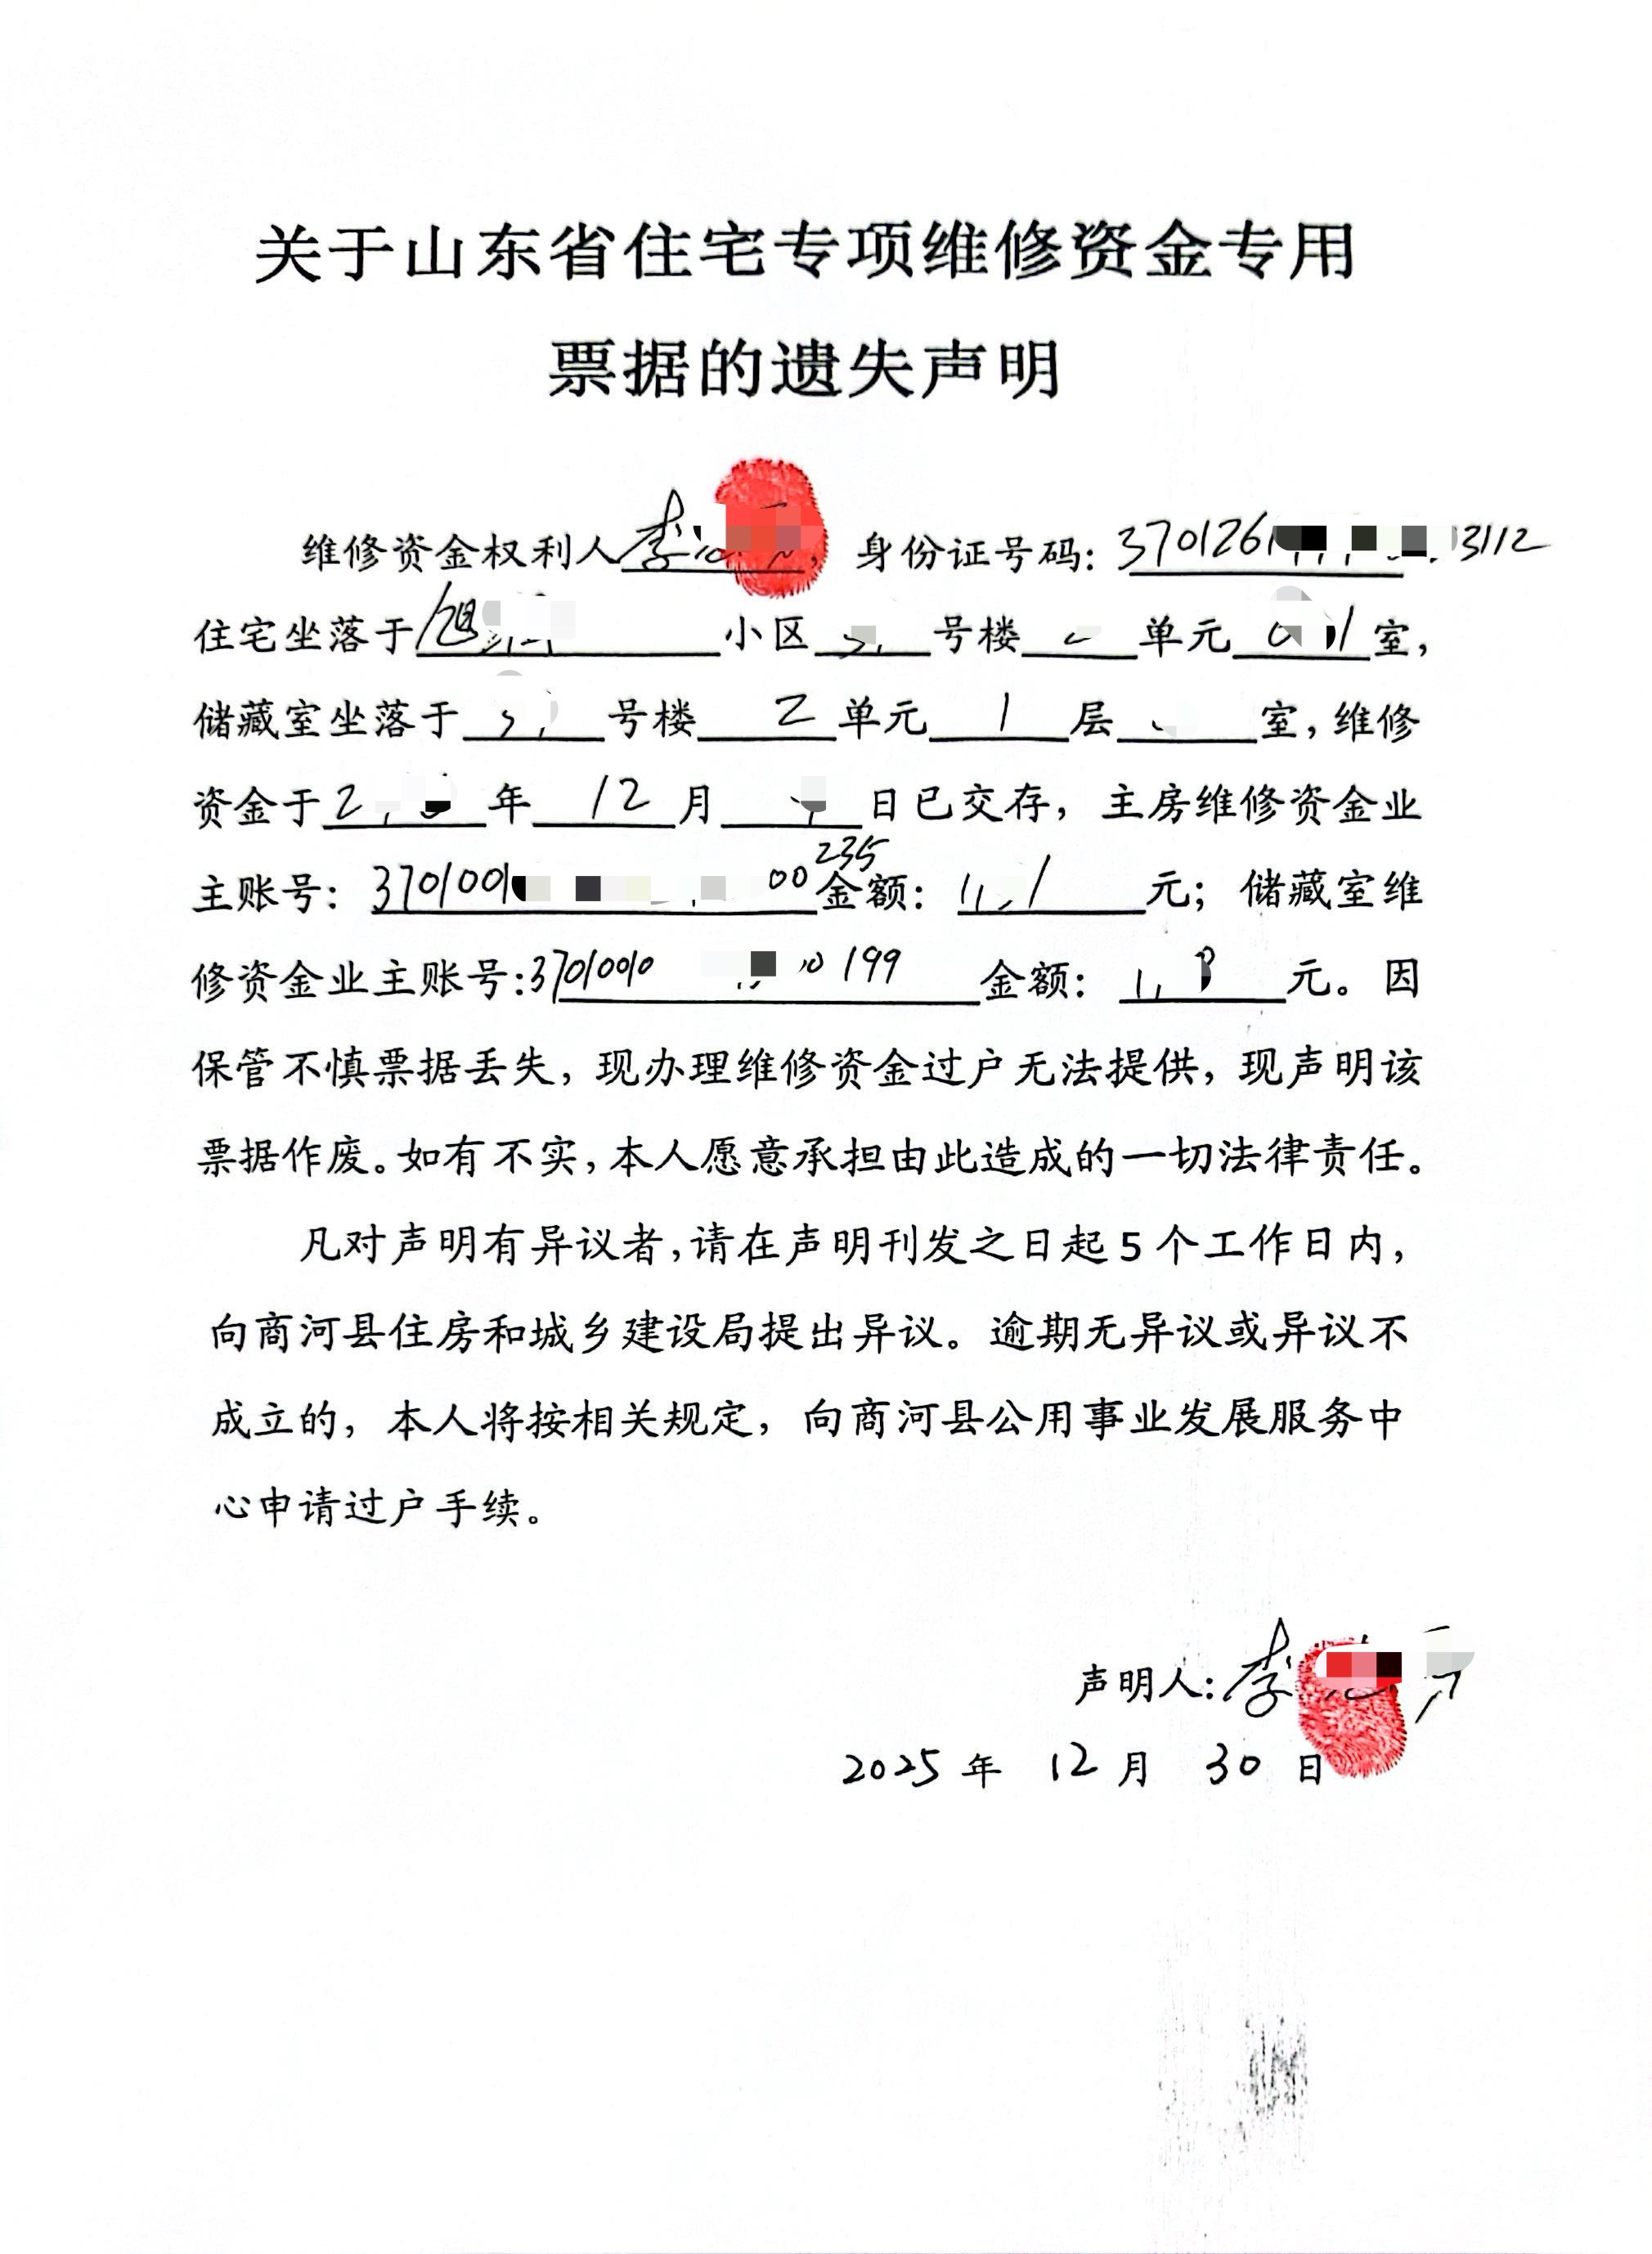 关于山东省住宅专项维修资金专用
票据的遗失声明
维修资金权利人李 身份证号码：3701261 3112
住宅坐落于旭 小区 号楼 单元 1室，
储藏室坐落于 号楼 2 单元 1 层 室，维修
资金于2 年 12 月 日已交存，主房维修资金业
主账号：3701001 00235 金额： 元；储藏室维
修资金业主账号：37010010 199 金额： 元。因
保管不慎票据丢失，现办理维修资金过户无法提供，现声明该
票据作废。如有不实，本人愿意承担由此造成的一切法律责任。
凡对声明有异议者，请在声明刊发之日起5个工作日内，
向商河县住房和城乡建设局提出异议。逾期无异议或异议不
成立的，本人将按相关规定，向商河县公用事业发展服务中
心申请过户手续。
声明人：李
2025 年 12 月 30 日